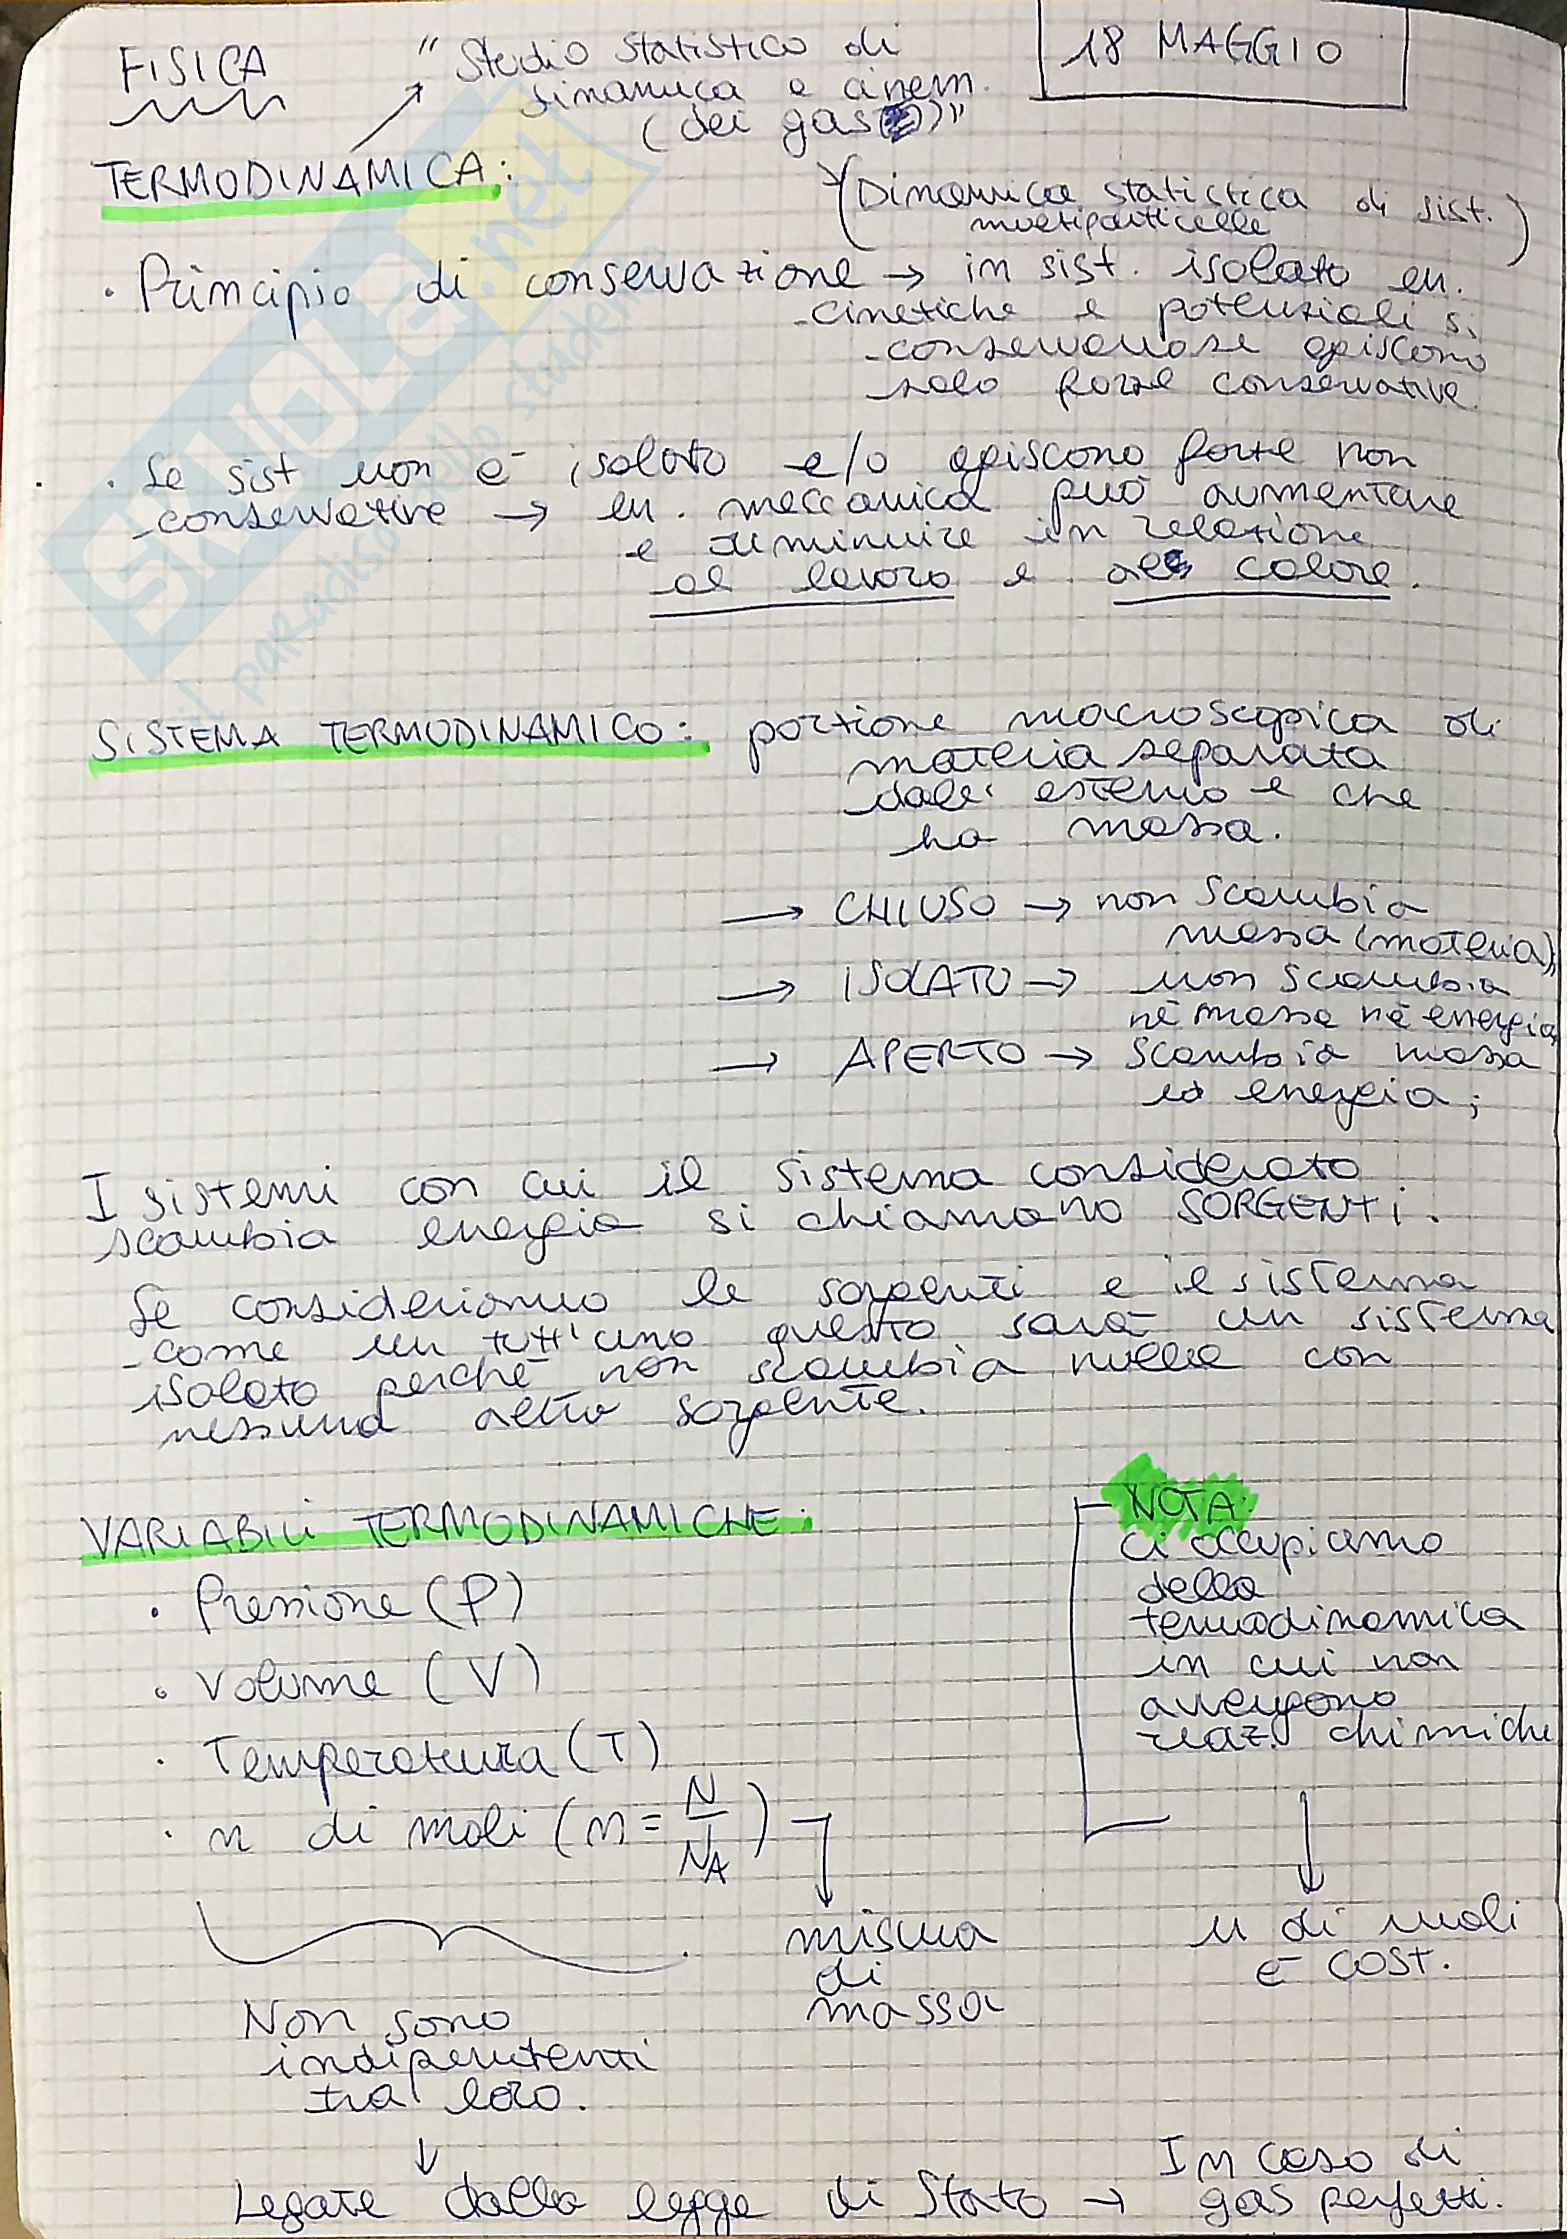 FISICA
"Studio statistico di
dinamica e cinem.
(dei gas)"
18 MAGGIO
TERMODINAMICA:
(Dinamica statistica di sist.
multiparticelle)
· Principio di conservazione → in sist. isolato en.
cinetiche e potenziali si
conservano se agiscono
solo forze conservative.
· Se sist non è isolato e/o agiscono forze non
conservative → en. meccanica può aumentare
e diminuire in relazione
al lavoro e al calore.
SISTEMA TERMODINAMICO: porzione macroscopica di
materia separata
dall'esterno e che
ha massa.
→ CHIUSO → non scambia
massa (materia);
→ ISOLATO → non scambia
nè massa nè energia;
→ APERTO → scambia massa
ed energia;
I sistemi con cui il sistema considerato
scambia energia si chiamano SORGENTI.
Se consideriamo le sorgenti e il sistema
come un tutt'uno questo sarà un sistema
isolato perchè non scambia nulla con
nessuna altra sorgente.
VARIABILI TERMODINAMICHE:
· Pressione (P)
· Volume (V)
· Temperatura (T)
· n di moli (n = N/NA)
misura
di
massa
Non sono
indipendenti
tra loro.
↓
Legate dalla legge di Stato → In caso di
gas perfetti.
NOTA:
ci occupiamo
della
termodinamica
in cui non
avvengono
reaz. chimiche
n di moli
è cost.
SKUOLA.net
il paradiso dello studente